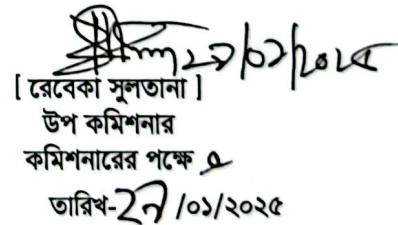 ২৭/০১/২০২৫
[ রেবেকা সুলতানা ]
উপ কমিশনার
কমিশনারের পক্ষে
তারিখ-২৭/০১/২০২৫